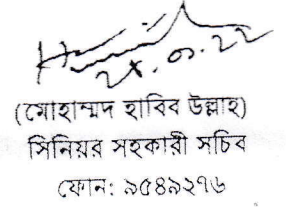 (মোহাম্মদ হাবিব উল্লাহ)
সিনিয়র সহকারী সচিব
ফোন: ৯৫৪৯২৭৬